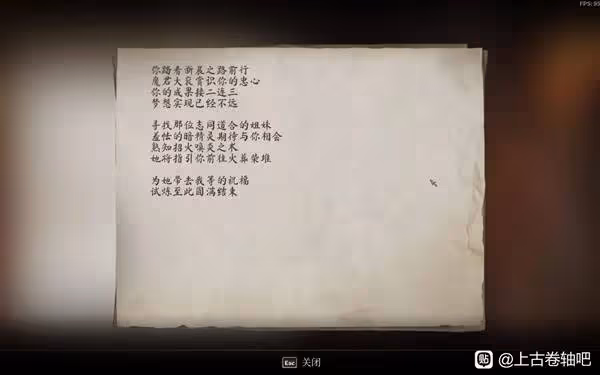 FPS: 85
你踏着渐晨之路前行
魔君大衮赏识你的忠心
你的成果接二连三
梦想实现已经不远
寻找那位志同道合的姐妹
羞怯的暗精灵期待与你相会
熟知招火唤炎之术
她将指引你前往火葬荣堆
为她带去我等的祝福
试炼至此圆满结束
Esc 关闭
贴 @上古卷轴吧